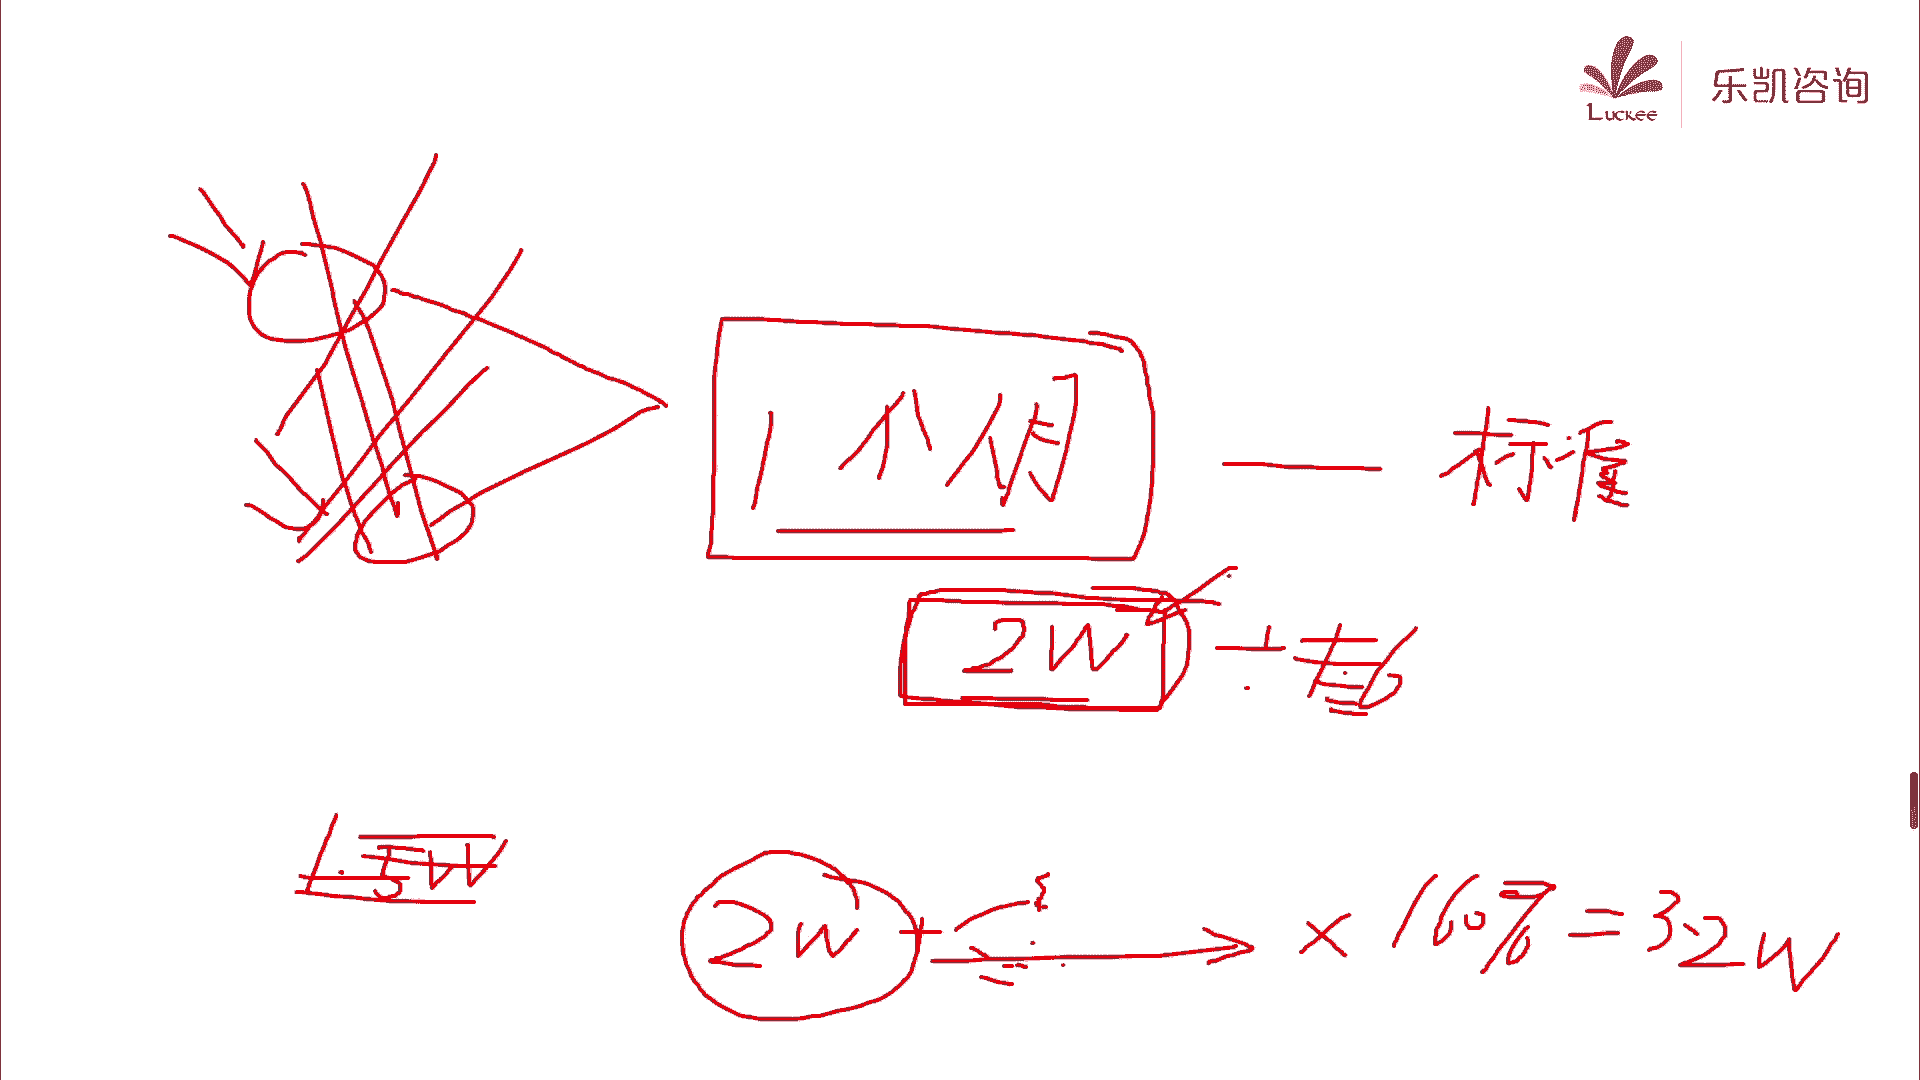 Luckee 乐凯咨询
1个月 — 标准
2W
1.5W
2W × 160% = 3.2W